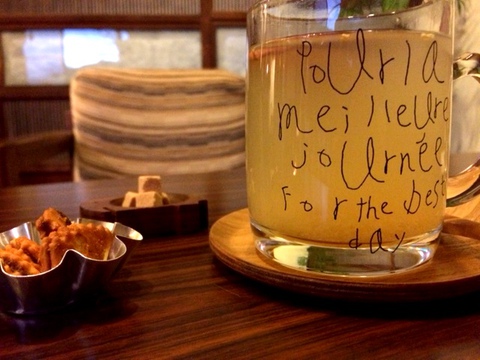 Pour la
meilleure
journée
For the best
day